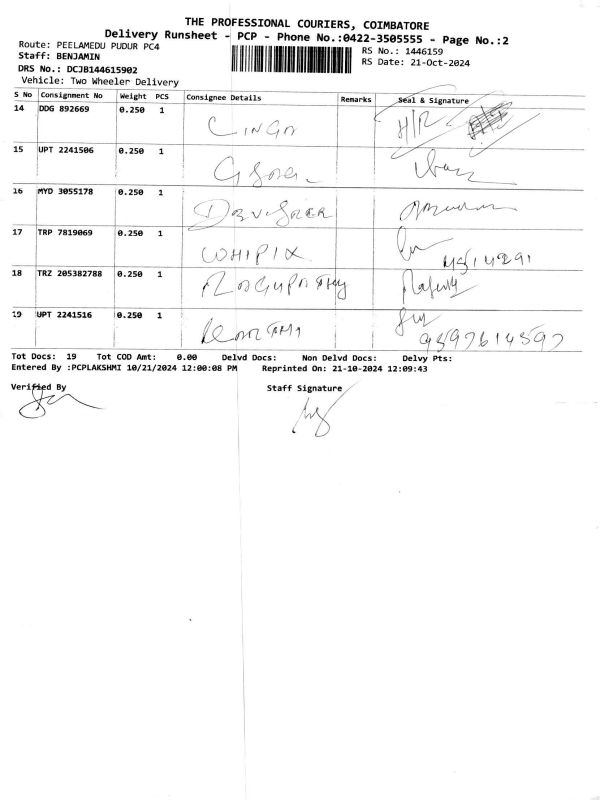 THE PROFESSIONAL COURIERS, COIMBATORE
Delivery Runsheet - PCP - Phone No.:0422-3505555 - Page No.:2
Route: PEELAMEDU PUDUR PC4
RS No.: 1446159
Staff: BENJAMIN
RS Date: 21-Oct-2024
DRS No.: DCJB144615902
Vehicle: Two Wheeler Delivery
S No Consignment No Weight PCS Consignee Details Remarks Seal & Signature
14 DDG 892669 0.250 1 H/R
15 UPT 2241506 0.250 1
16 MYD 3055178 0.250 1
17 TRP 7819069 0.250 1 WHIPIX
18 TRZ 205382788 0.250 1
19 UPT 2241516 0.250 1
Tot Docs: 19 Tot COD Amt: 0.00 Delvd Docs: Non Delvd Docs: Delvy Pts:
Entered By :PCPLAKSHMI 10/21/2024 12:00:08 PM Reprinted On: 21-10-2024 12:09:43
Verified By Staff Signature